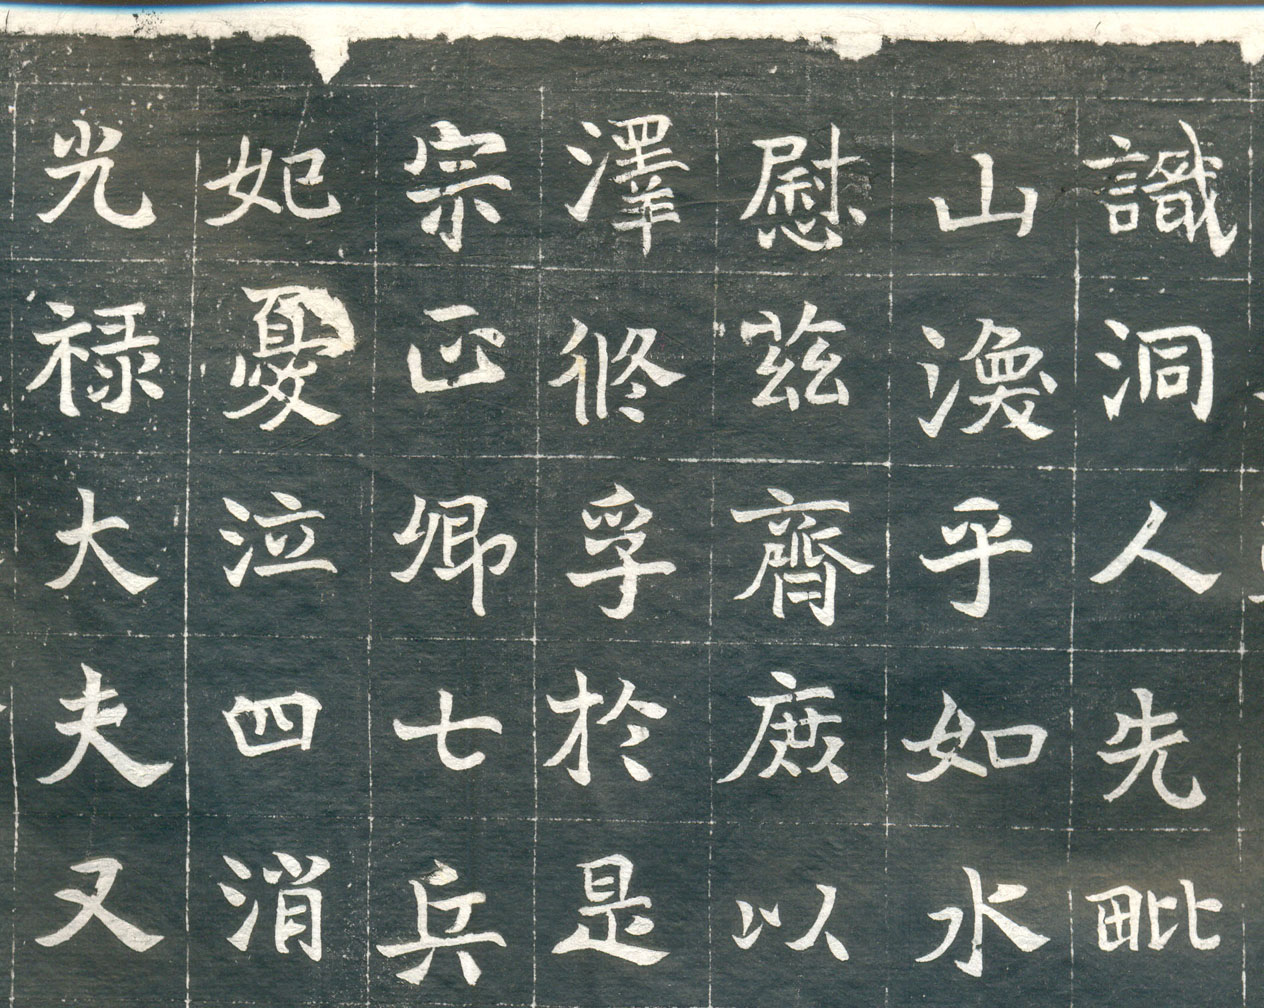 識洞人先毗
山渙乎如水
慰茲齊庶以
澤修孚於是
宗正卿七兵
妃憂泣四消
光禄大夫又